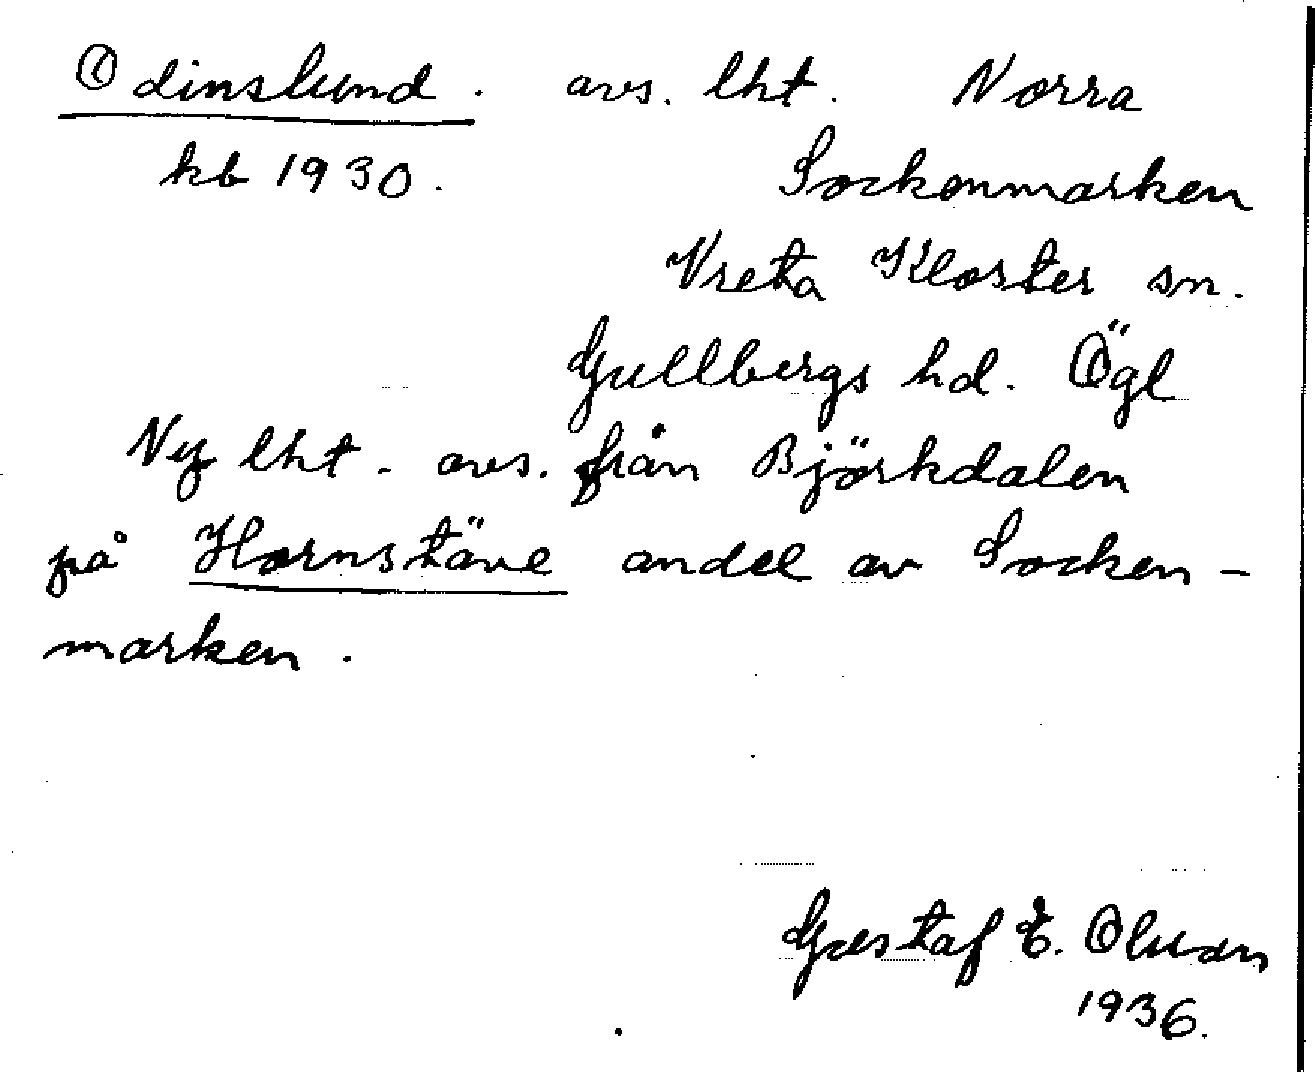 Odinslund. avs. lht. Norra
kb 1930. Sockenmarken
Vreta Kloster sn.
Gullbergs hd. Ögl
Ny lht. avs. från Björkdalen
på Hornstäve andel av Socken-
marken.
Gustaf E. Olsson
1936.